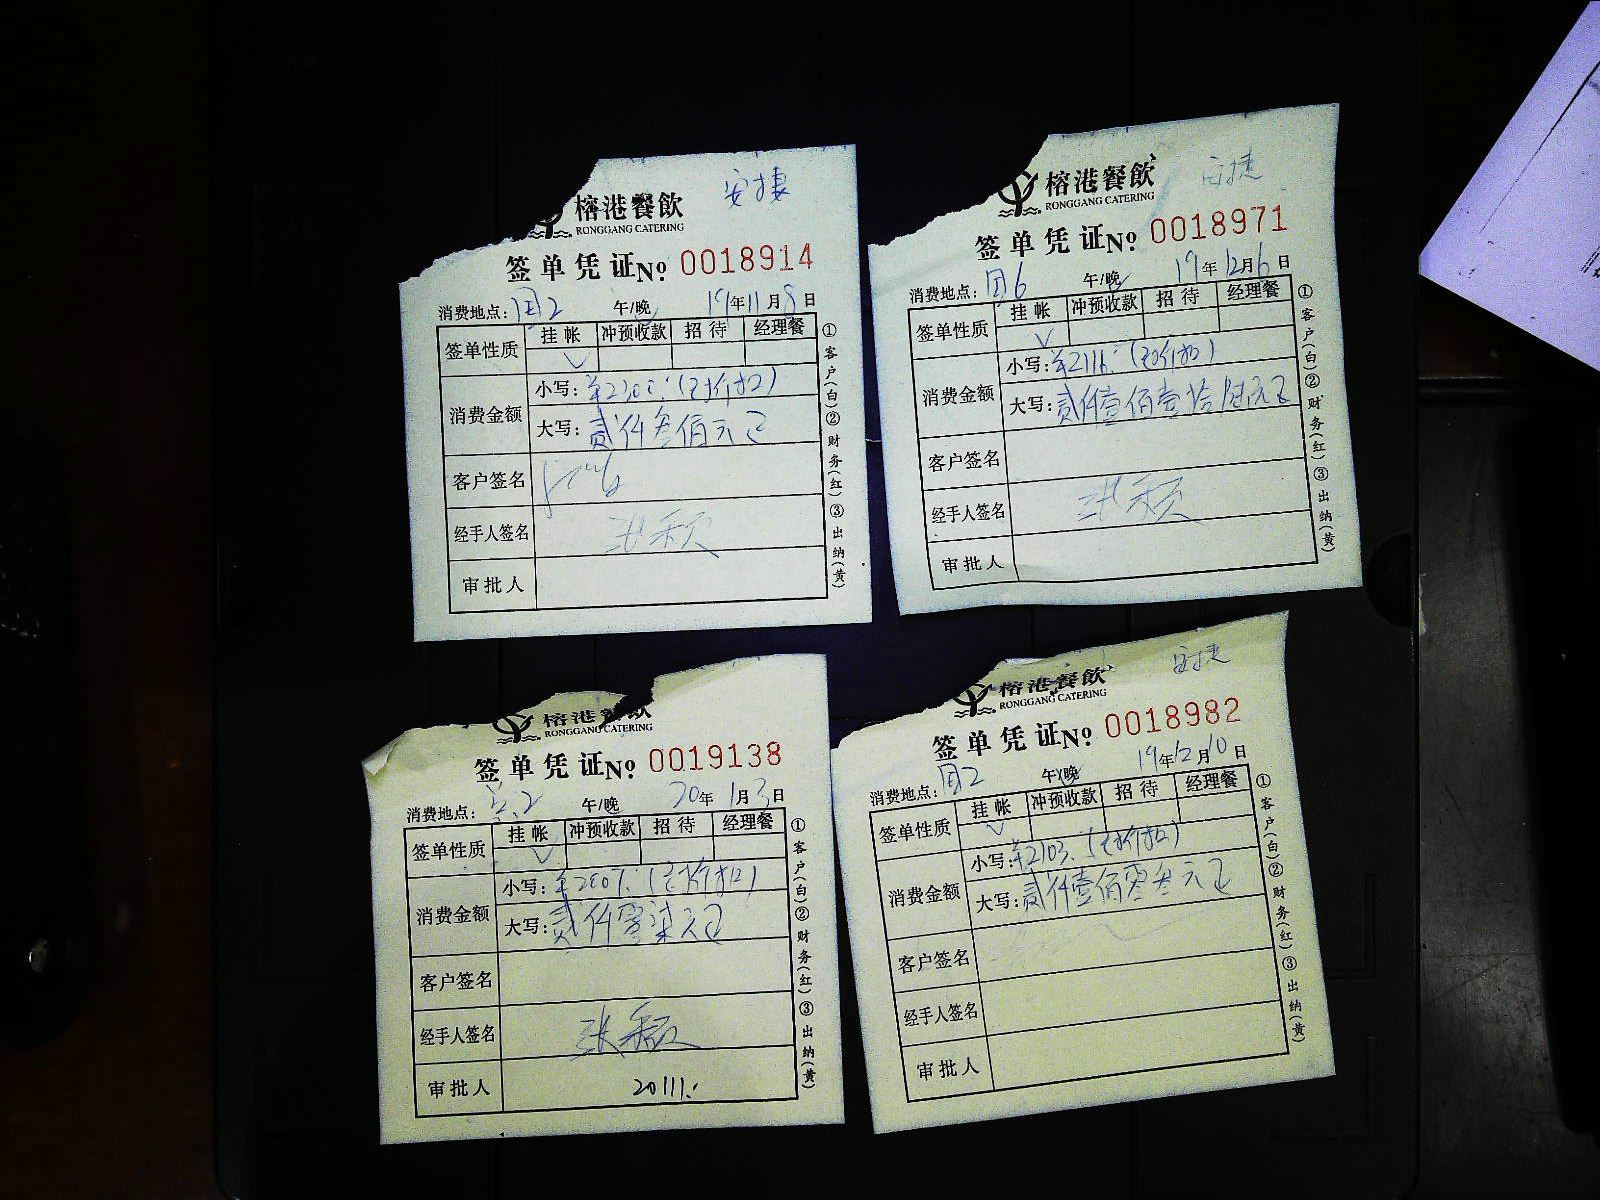 安捷
榕港餐飲
RONGGANG CATERING
签单凭证No. 0018914
消费地点: 团2 午/晚 19年11月8日
签单性质 挂帐 冲预收款 招待 经理餐
✓
消费金额 小写: ¥2300.: (已折扣)
大写: 贰仟叁佰元正
客户签名
经手人签名 张颖
审批人
①客户(白)②财务(红)③出纳(黄)
安捷
榕港餐飲
RONGGANG CATERING
签单凭证No. 0018971
消费地点: 团6 午/晚 19年12月6日
签单性质 挂帐 冲预收款 招待 经理餐
✓
消费金额 小写: ¥2116.: (已折扣)
大写: 贰仟壹佰壹拾陆元正
客户签名
经手人签名 张颖
审批人
①客户(白)②财务(红)③出纳(黄)
榕港餐飲
RONGGANG CATERING
签单凭证No. 0019138
消费地点: 午/晚 20年1月3日
签单性质 挂帐 冲预收款 招待 经理餐
✓
消费金额 小写: ¥2007.: (已折扣)
大写: 贰仟零柒元正
客户签名
经手人签名 张颖
审批人 20111.:
①客户(白)②财务(红)③出纳(黄)
安捷
榕港餐飲
RONGGANG CATERING
签单凭证No. 0018982
消费地点: 团2 午/晚 19年12月10日
签单性质 挂帐 冲预收款 招待 经理餐
✓
消费金额 小写: ¥2103.: (已折扣)
大写: 贰仟壹佰零叁元正
客户签名
经手人签名
审批人
①客户(白)②财务(红)③出纳(黄)